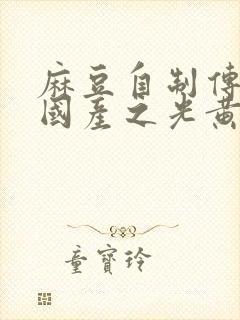 麻豆自制傳
國產之光黃
童寶玲